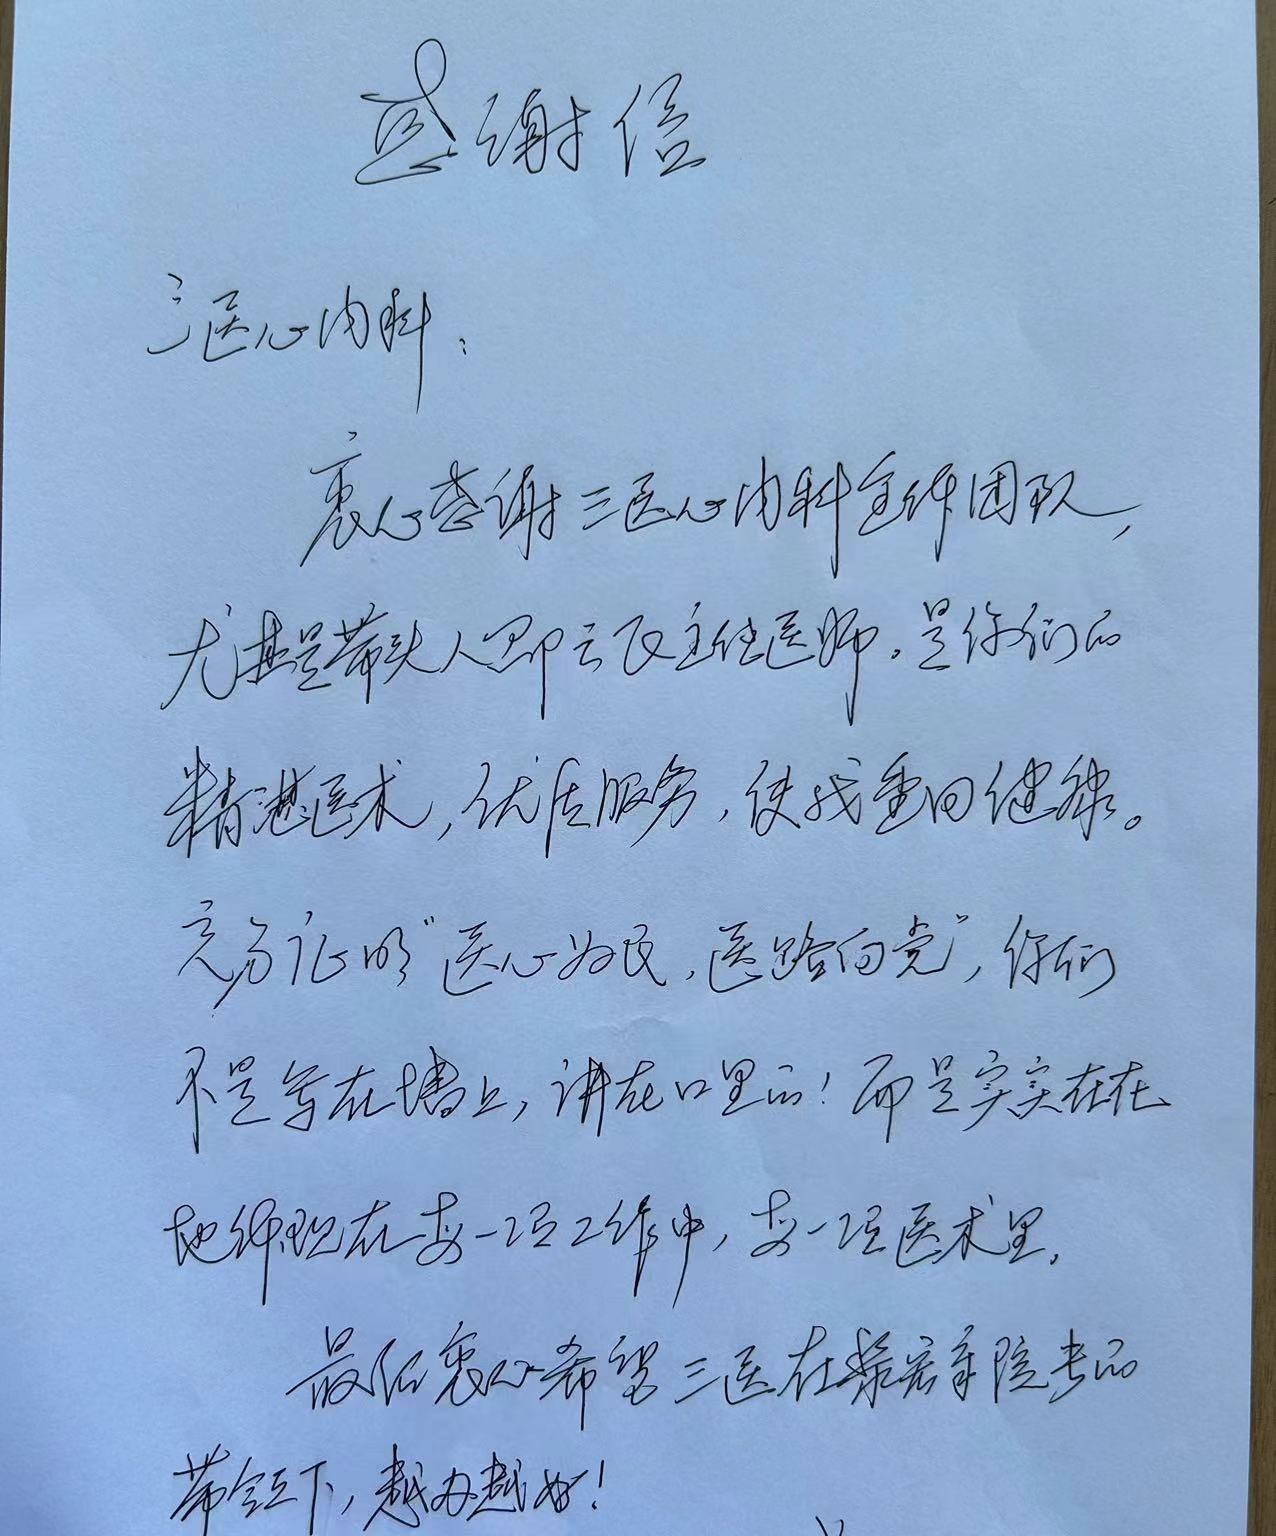 感谢信
三医心内科:
衷心感谢三医心内科全体团队,
尤其是带头人邵云民主任医师。是你们的
精湛医术,优质服务,使我重回健康。
充分证明"医心为民,医路向党",你们
不是写在墙上,讲在口里的!而是实实在在
地体现在每一项工作中,每一项医术里.
最后衷心希望三医在宏章院长的
带领下,越办越好!